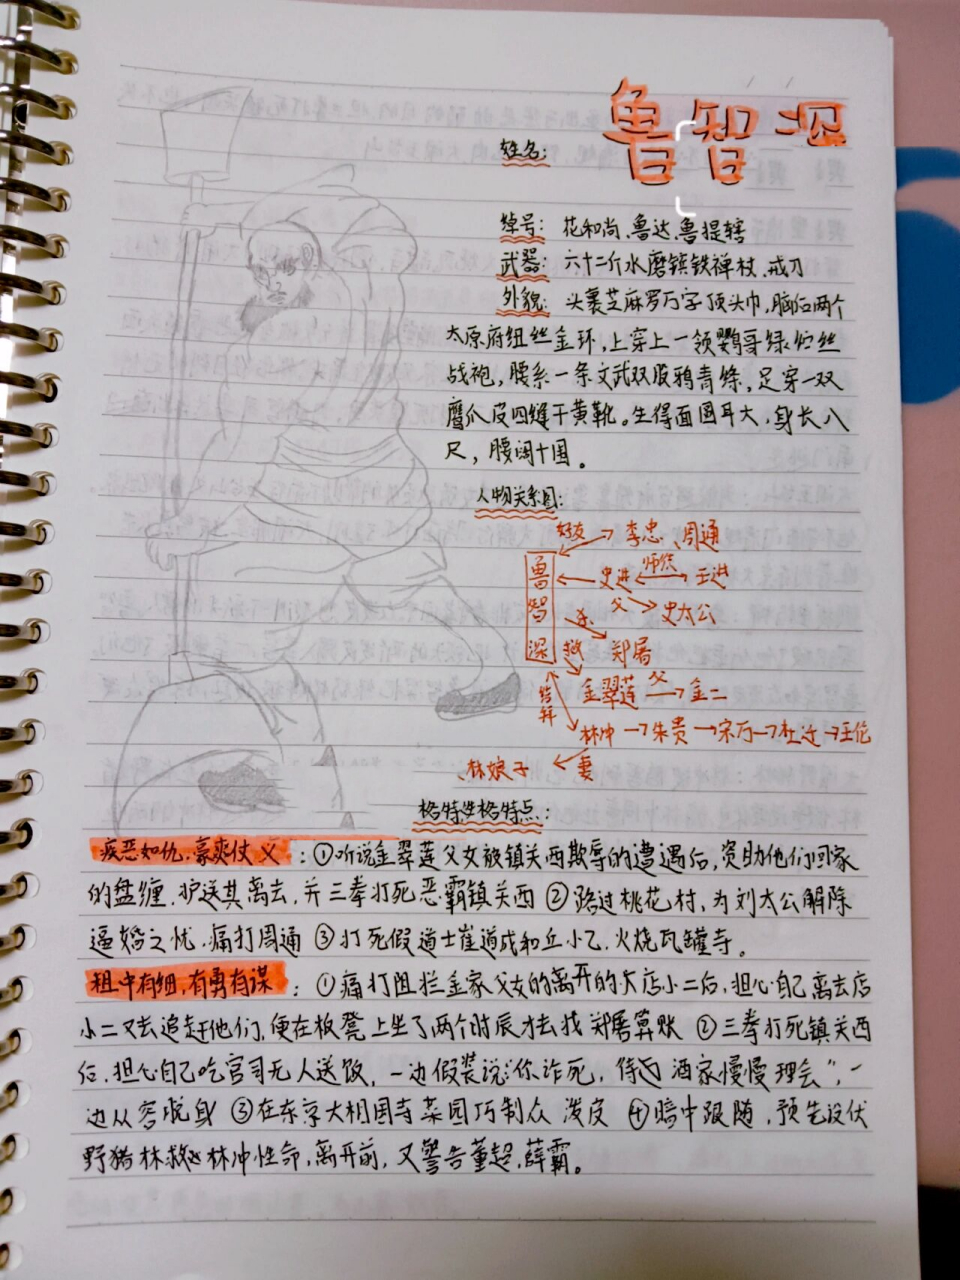 鲁智深
姓名:
绰号: 花和尚、鲁达、鲁提辖
武器: 六十二斤水磨镔铁禅杖,戒刀
外貌: 头裹芝麻罗万字顶头巾,脑后两个
太原府纽丝金环,上穿上一领鹦哥绿纻丝
战袍,腰系一条文武双股鸦青绦,足穿一双
鹰爪皮四缝干黄靴。生得面圆耳大,身长八
尺,腰阔十围。
人物关系图:
好友 李忠、周通
鲁智深 史进 师徒 王进
父 史太公
杀 郑屠
救 金翠莲 父 金二
结拜 林冲 朱贵 宋万 杜迁 王伦
林娘子 妻
格特性格特点:
疾恶如仇,豪爽仗义: ①听说金翠莲父女被镇关西欺辱的遭遇后,资助他们回家
的盘缠,护送其离去,并三拳打死恶霸镇关西 ②路过桃花村,为刘太公解除
逼婚之忧,痛打周通 ③打死假道士崔道成和丘小乙,火烧瓦罐寺。
粗中有细,有勇有谋: ①痛打阻拦金家父女的离开的大店小二后,担心自己离去店
小二又去追赶他们,便在板凳上坐了两个时辰才去找郑屠算账 ②三拳打死镇关西
后,担心自己吃官司无人送饭,一边假装说:"你诈死,待洒家慢慢理会",一
边从容脱身 ③在东京大相国寺菜园巧制众泼皮 ④暗中跟随,预先设伏
野猪林救林冲性命,离开前,又警告董超,薛霸。